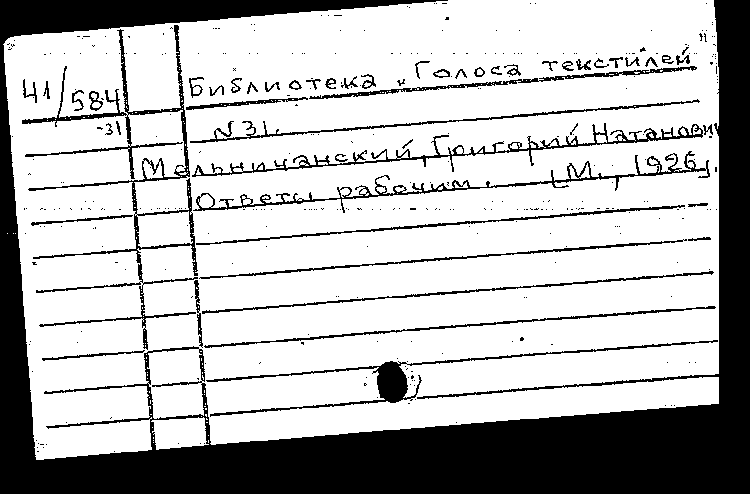 41/584
-31
Библиотека „Голоса текстилей".
N 31.
Мельничанский, Григорий Натанович
Ответы рабочим. [М., 1926].